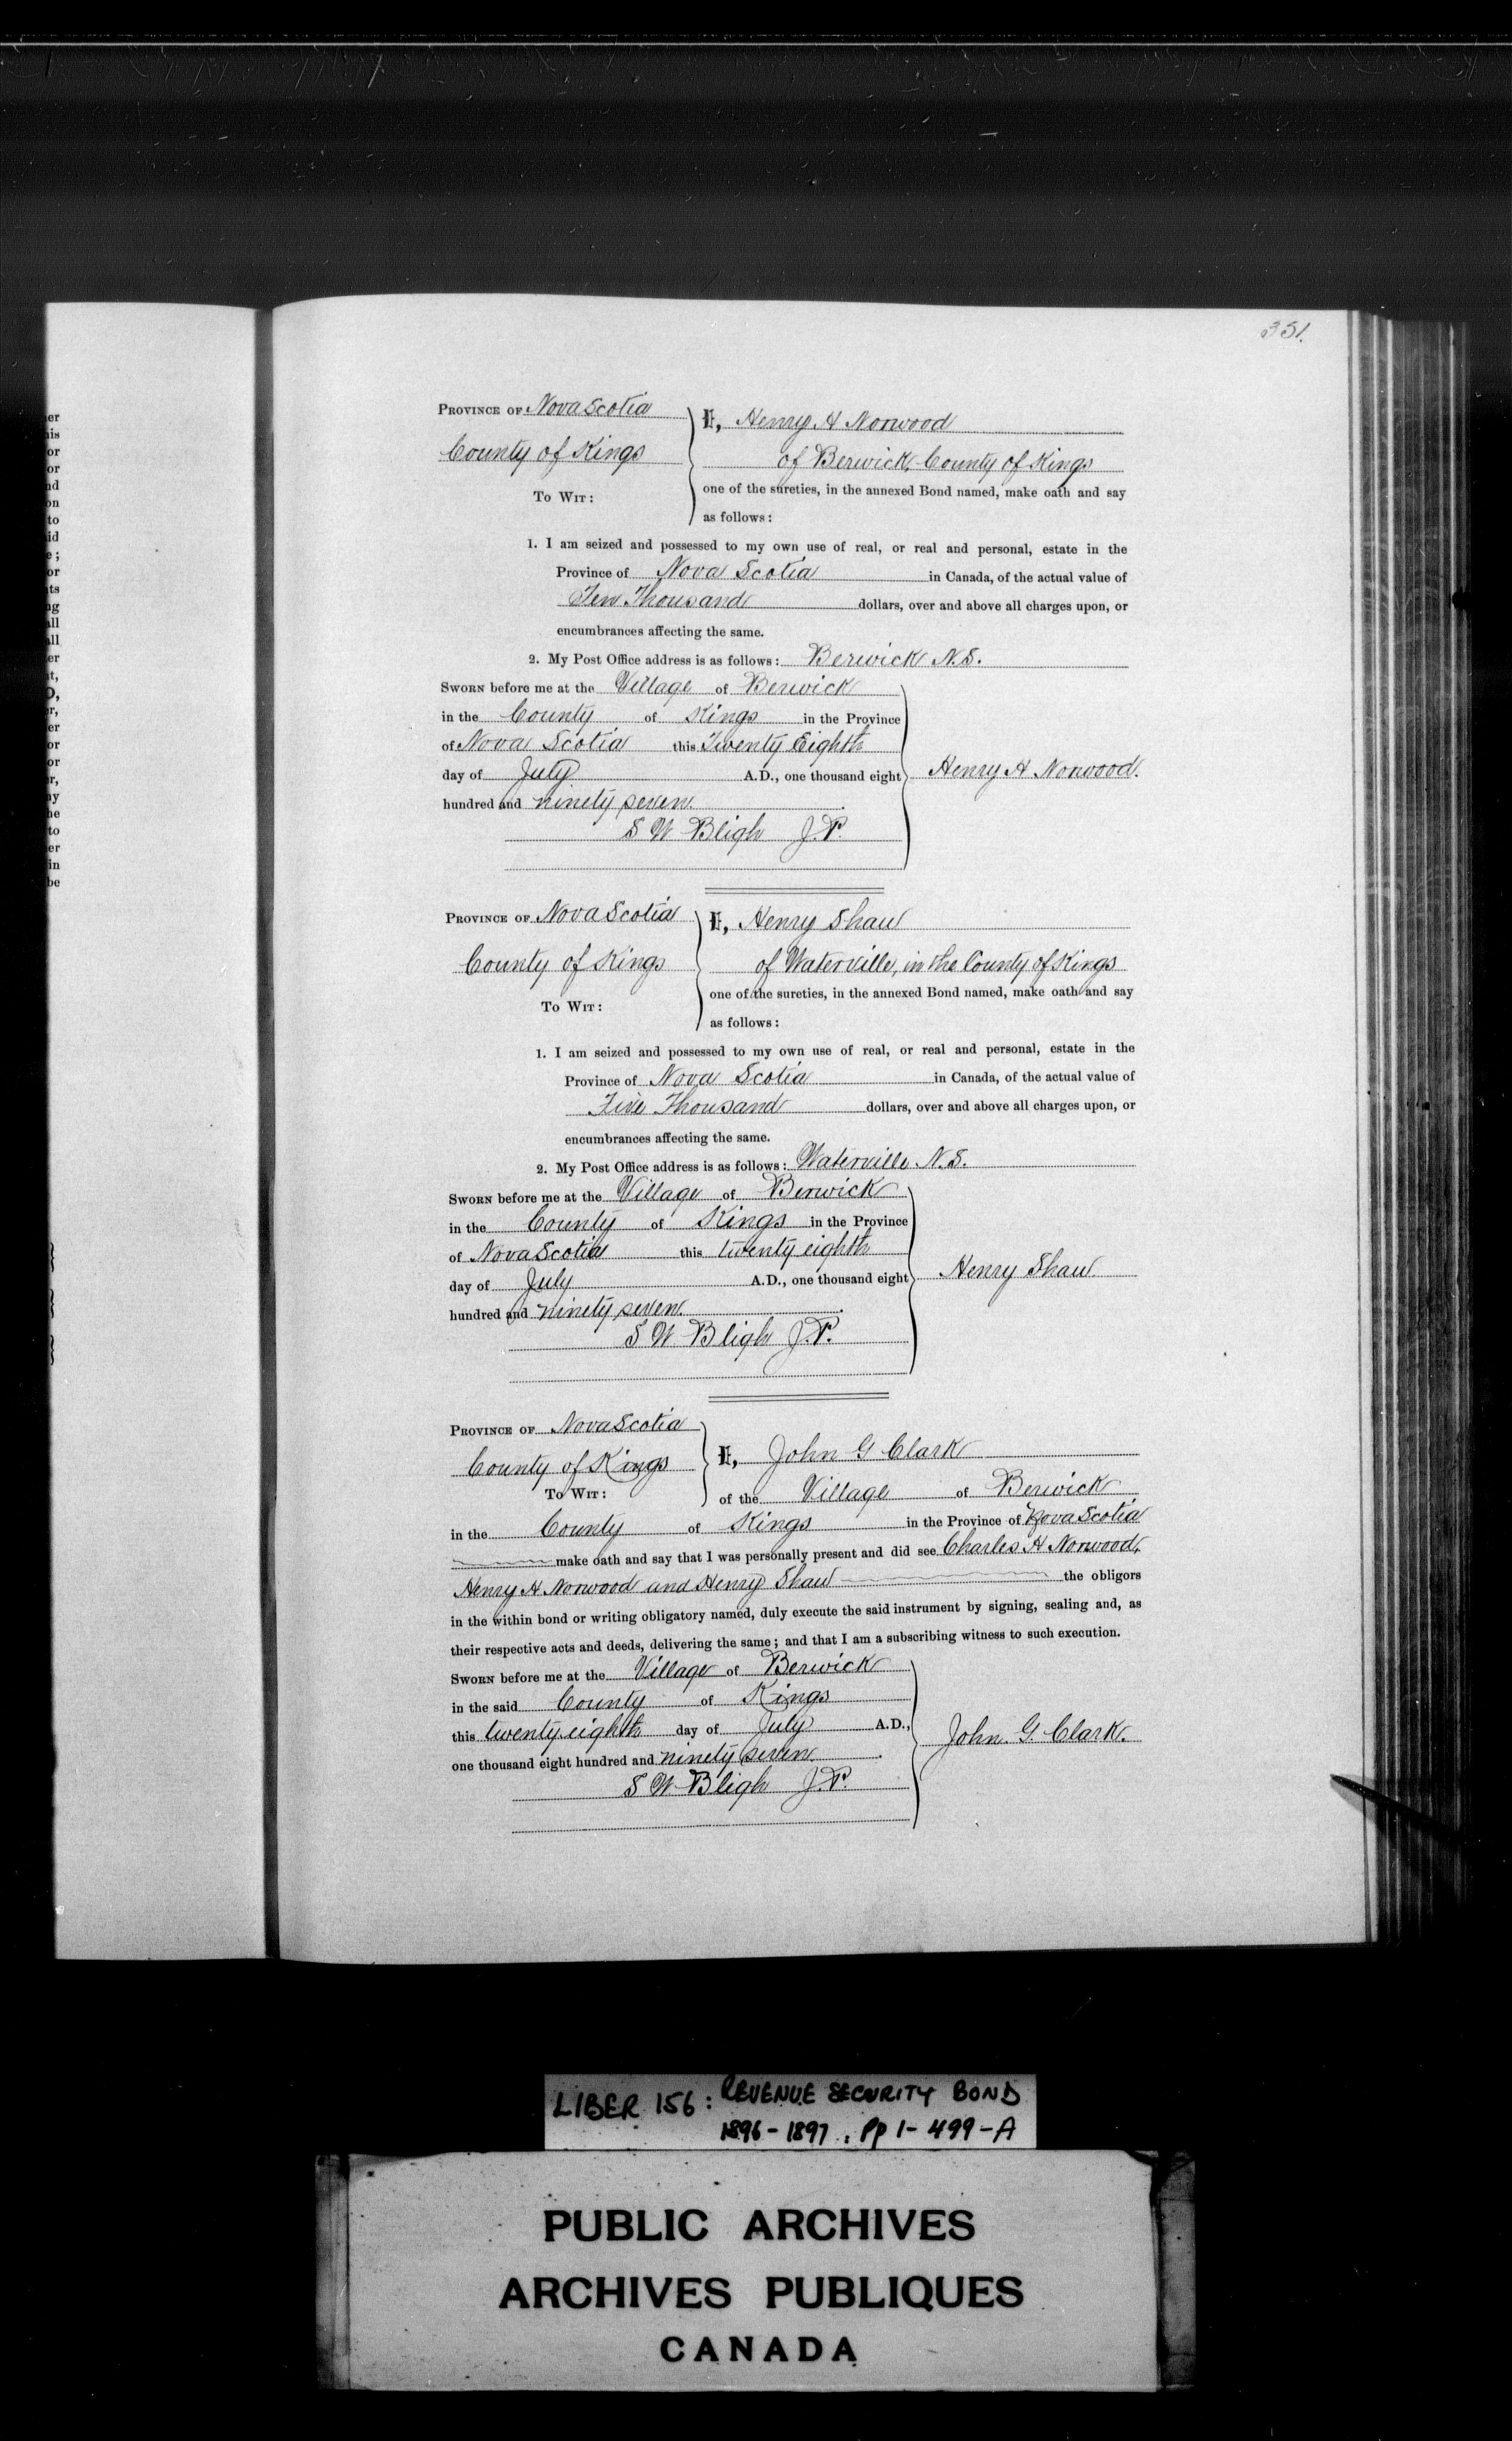 351.
er
is
or
or
nd
on
to
id
e ;
or
ts
ng
all
all
er
it,
D,
er,
er
or
or
r,
ay
he
to
er
in
be
PROVINCE OF Nova Scotia
County of Kings
TO WIT:
I, Henry A Norwood
of Berwick, County of Kings
one of the sureties, in the annexed Bond named, make oath and say
as follows:
1. I am seized and possessed to my own use of real, or real and personal, estate in the
Province of Nova Scotia in Canada, of the actual value of
Ten Thousand dollars, over and above all charges upon, or
encumbrances affecting the same.
2. My Post Office address is as follows: Berwick N.S.
SWORN before me at the Village of Berwick
in the County of Kings in the Province
of Nova Scotia this Twenty Eighth
day of July A.D., one thousand eight
hundred and ninety seven.
S W Bligh J.P.
Henry A Norwood.
PROVINCE OF Nova Scotia
County of Kings
TO WIT:
I, Henry Shaw
of Waterville, in the County of Kings
one of the sureties, in the annexed Bond named, make oath and say
as follows:
1. I am seized and possessed to my own use of real, or real and personal, estate in the
Province of Nova Scotia in Canada, of the actual value of
Five Thousand dollars, over and above all charges upon, or
encumbrances affecting the same.
2. My Post Office address is as follows: Waterville N.S.
SWORN before me at the Village of Berwick
in the County of Kings in the Province
of Nova Scotia this twenty eighth
day of July A.D., one thousand eight
hundred and ninety seven.
S W Bligh J.P.
Henry Shaw
PROVINCE OF Nova Scotia
County of Kings
TO WIT:
I, John G Clark
of the Village of Berwick
in the County of Kings in the Province of Nova Scotia
make oath and say that I was personally present and did see Charles H Norwood,
Henry A Norwood and Henry Shaw the obligors
in the within bond or writing obligatory named, duly execute the said instrument by signing, sealing and, as
their respective acts and deeds, delivering the same; and that I am a subscribing witness to such execution.
SWORN before me at the Village of Berwick
in the said County of Kings
this twenty eighth day of July A.D.,
one thousand eight hundred and ninety seven.
S W Bligh J.P.
John G. Clark.
LIBER 156: REVENUE SECURITY BOND
1896-1897, Pp 1-499-A
PUBLIC ARCHIVES
ARCHIVES PUBLIQUES
CANADA